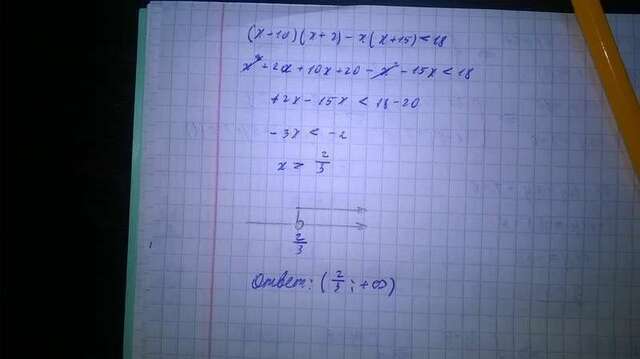 (x+10)(x+2)-x(x+15)<18
x²+2x+10x+20-x²-15x<18
12x-15x < 18-20
-3x < -2
x > 2/3
2/3
Ответ: (2/3; +∞)